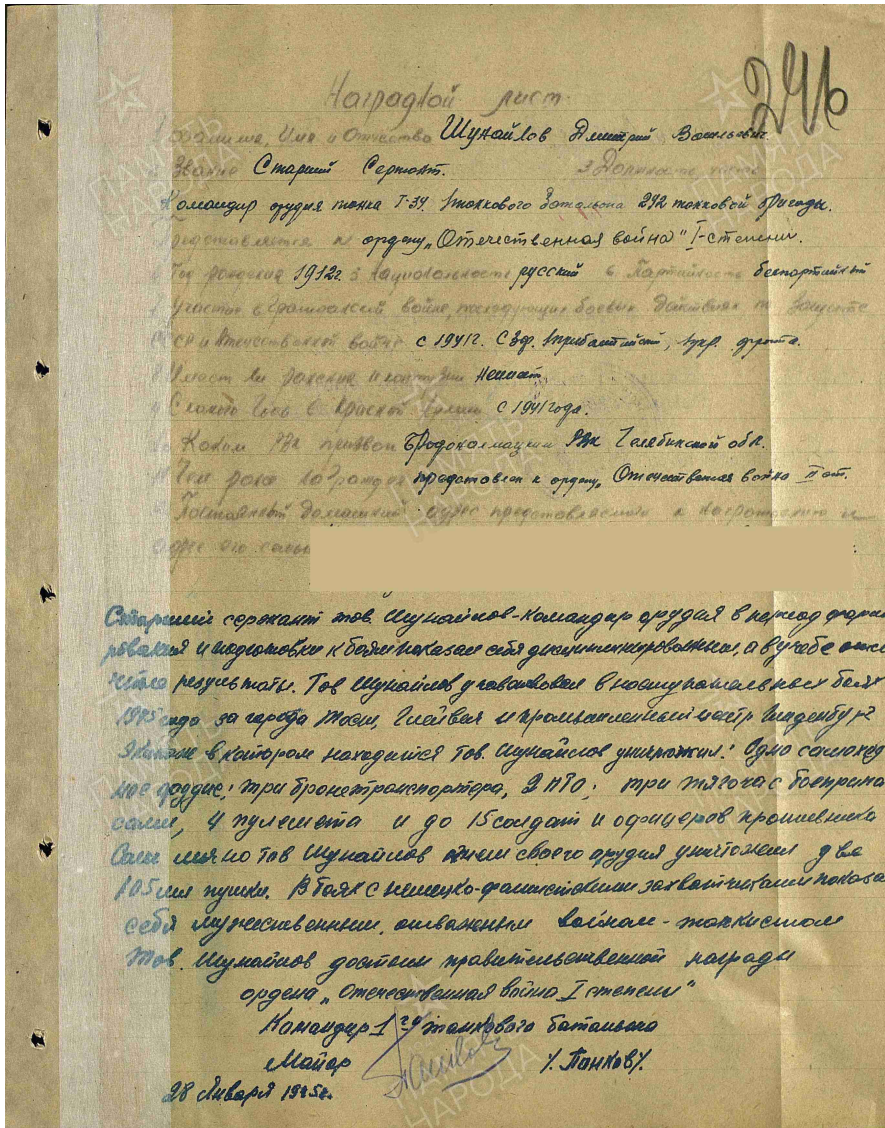 246
Наградной лист.
1 Фамилия, Имя и Отчество Шумайлов Дмитрий Васильевич
2 Звание Старший Сержант. 3 Должность, часть
Командир орудия танка Т-34. 1 танкового батальона 292 танковой бригады.
Представляется к ордену „Отечественная война" I-степени.
4 Год рождения 1912г. 5 Национальность русский 6 Партийность беспартийный
7 Участие в гражданской войне, последующих боевых действиях по защите
СССР и Отечественной войне с 1941г. С Зф. Прибалтийский, 1 укр. фронта.
8 Имеет ли ранения и контузии не имеет
9 С какого года в Красной Армии с 1941 года.
10 Каким РВК призван Бродокалмацким РВК Челябинской обл.
11 Чем ранее награжден представлен к ордену „Отечественная война II ст.
12 Постоянный домашний адрес представляемого к награждению и
адрес его семьи
Старший сержант тов. Шумайлов-командир орудия в период форми
рования и подготовки к боям показал себя дисциплинированным, а в учебе отли
чные результаты. Тов Шумайлов участвовал в наступательных боях
1945 года за города Тост, Глейвиц и промышленный центр Гинденбург
Экипаж в котором находится тов. Шумайлов уничтожил: Одно самоход
ное орудие; три бронетранспортера, 2 ПТО; три тягоча с боеприпа
сами, 4 пулемета и до 15 солдат и офицеров противника
Сам лично тов Шумайлов огнем своего орудия уничтожил две
105 мм пушки. В боях с немецко-фашистскими захватчиками показал
себя мужественным, отважным воином-танкистом
Тов. Шумайлов достоин правительственной награды
ордена „Отечественная война I степени"
Командир 1го танкового батальона
Майор /. Панков/.
28 Января 1945г.
ПАМЯТЬ НАРОДА